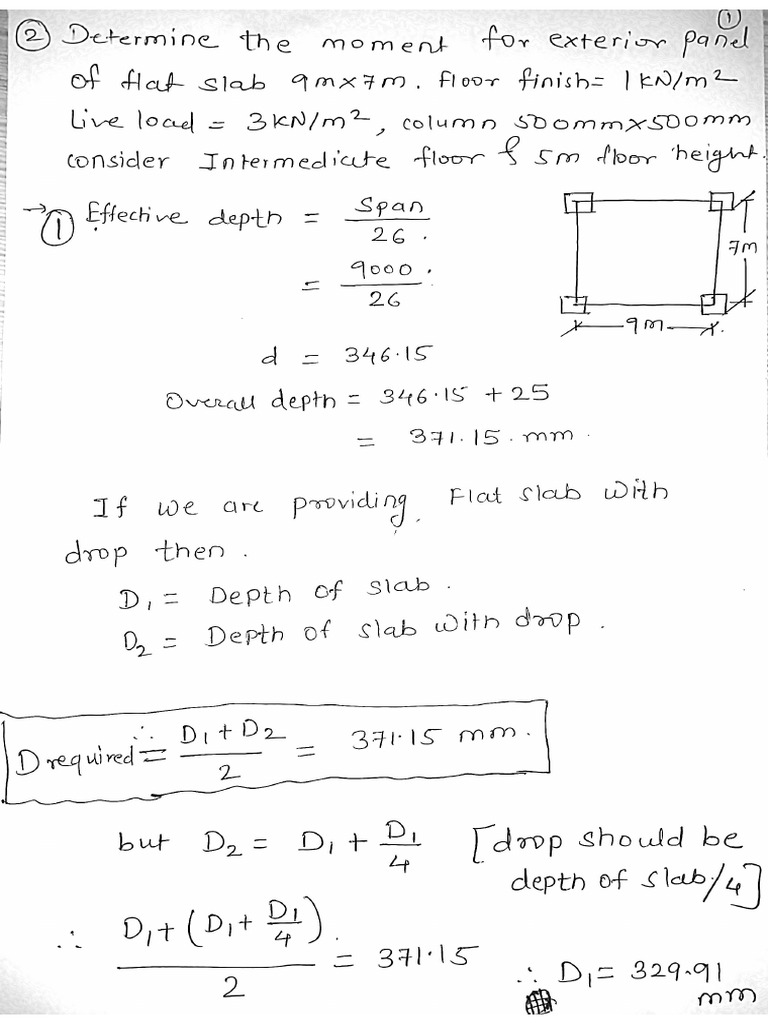 ①
② Determine the moment for exterior panel
of flat slab 9m×7m. floor finish= 1kN/m2
Live load = 3kN/m2, column 500mm×500mm
consider Intermediate floor & 5m floor height.
→① Effective depth = Span/26.
= 9000/26.
7m
9m
d = 346.15
Overall depth = 346.15 + 25
= 371.15.mm.
If we are providing Flat slab with
drop then.
D1 = Depth of slab.
D2 = Depth of slab with drop.
∴ D required = (D1+D2)/2 = 371.15 mm.
but D2 = D1 + D1/4 [drop should be
depth of slab/4]
∴ (D1+(D1+D1/4))/2 = 371.15 ∴ D1= 329.91
mm